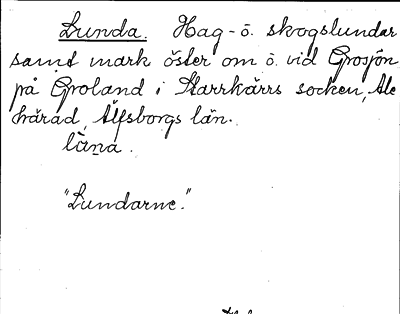 Lunda. Hag- o. skogslundar
samt mark öster om o. vid Grosjön
på Groland i Starrkärrs socken, Ale
härad, Älfsborgs län.
"Lundarne."